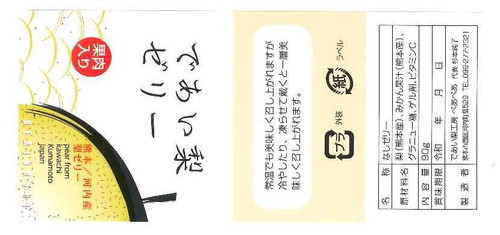 果肉
入り
であい梨
ゼリー
熊本／河内産
梨ゼリー
pear from
kawachi
Kumamoto
Japan
常温でも美味しく召し上がれますが
冷やしたり、凍らせて戴くと一層美
味しく召し上がれます。
プラ
外装
紙
ラベル
名 称 なしゼリー
原材料名 梨(熊本産)、みかん果汁(熊本産)、
グラニュー糖、ゲル剤、ビタミンC
内容量 90g
賞味期限 令和 年 月 日
製造者 であい梨工房 ぺあぺあ 代表 杉本純子
TEL.096-277-2321